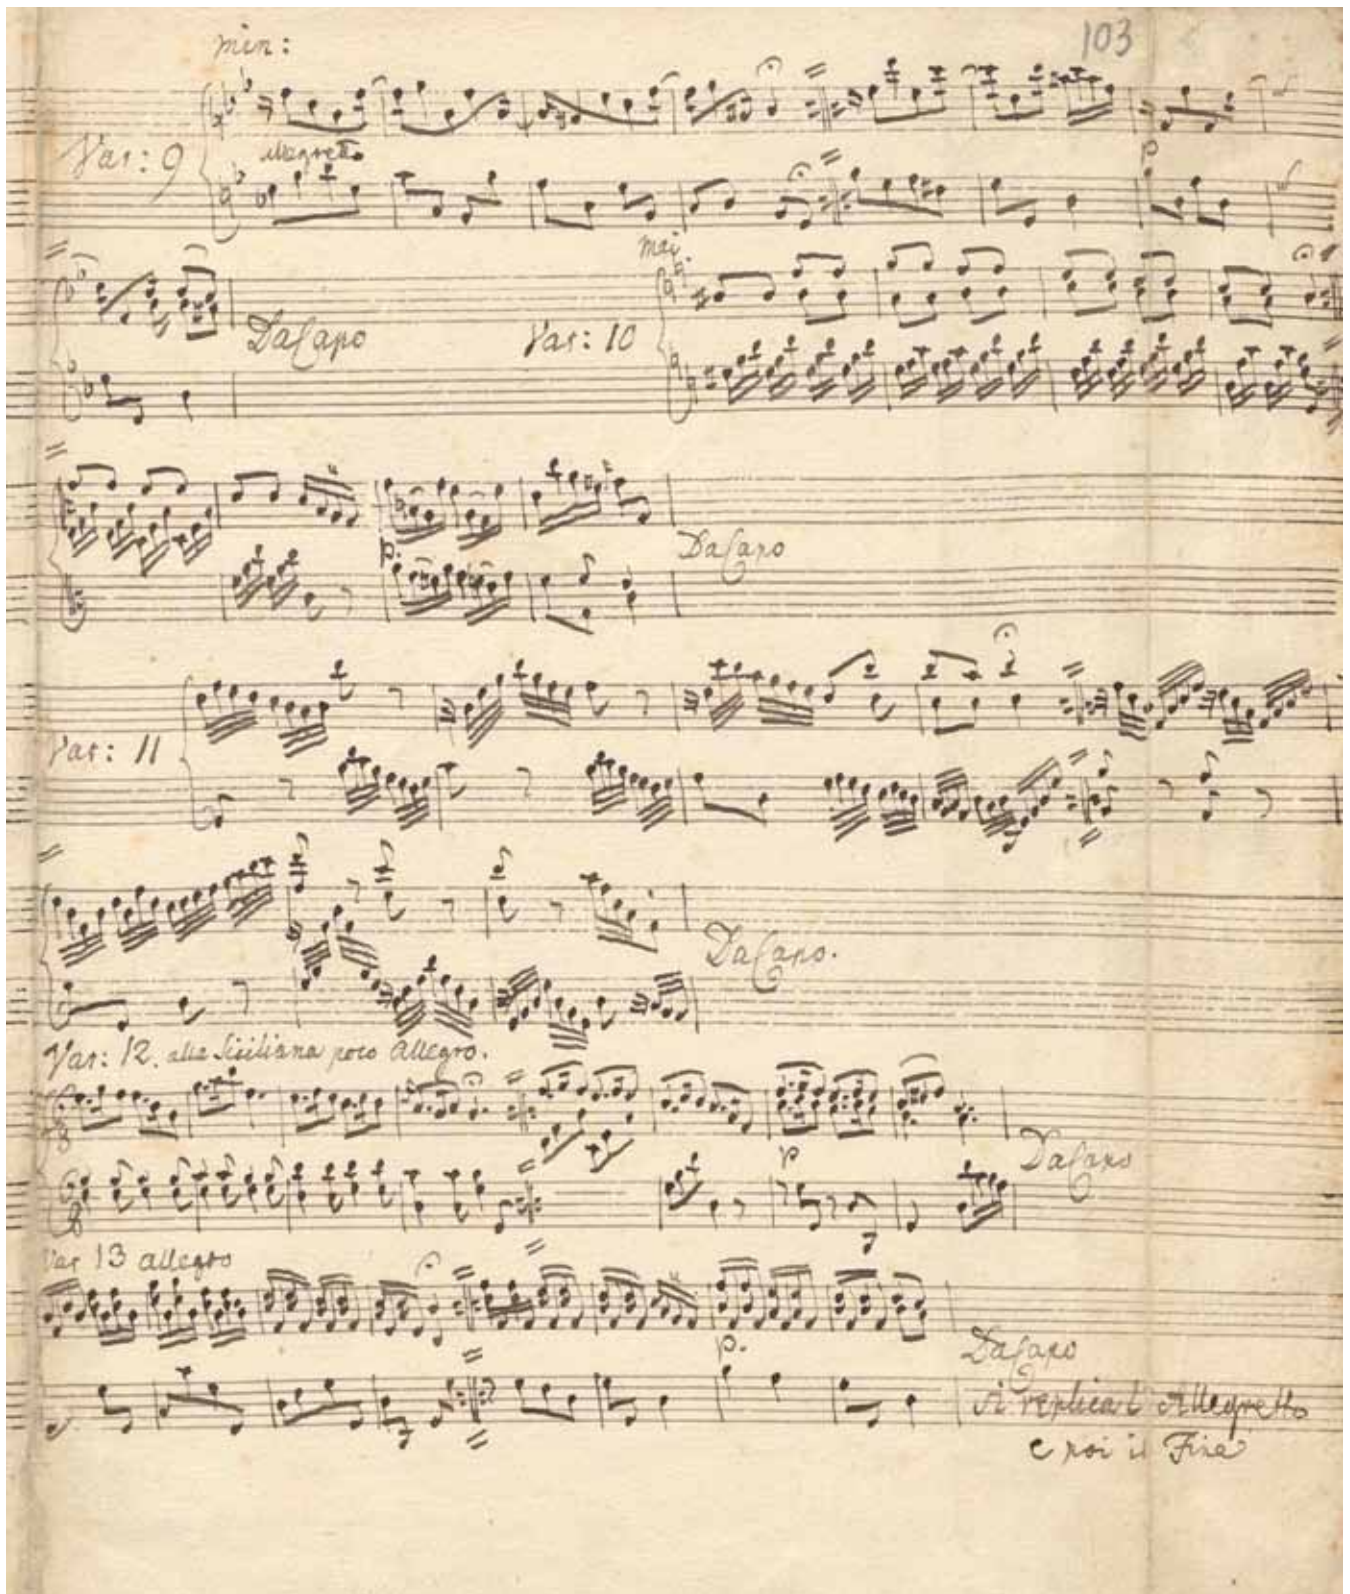 min:
103
Var: 9
Allegretto
p
mai.
DaCapo
Var: 10
p.
DaCapo
Var: 11
DaCapo.
Var: 12. alla Siciliana poco Allegro.
6
8
6
8
p
DaCapo
Var 13 allegro
p.
DaCapo
si replica l'Allegretto
e poi il Fine